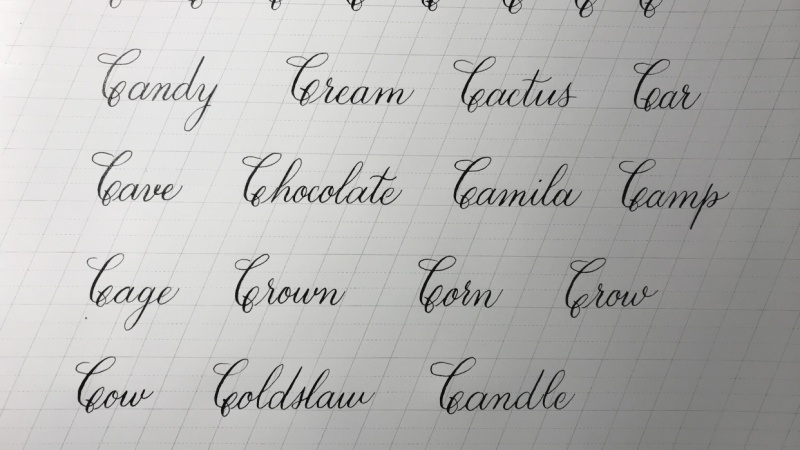 Candy Cream Cactus Car
Cave Chocolate Camila Camp
Cage Crown Corn Crow
Cow Coldslaw Candle